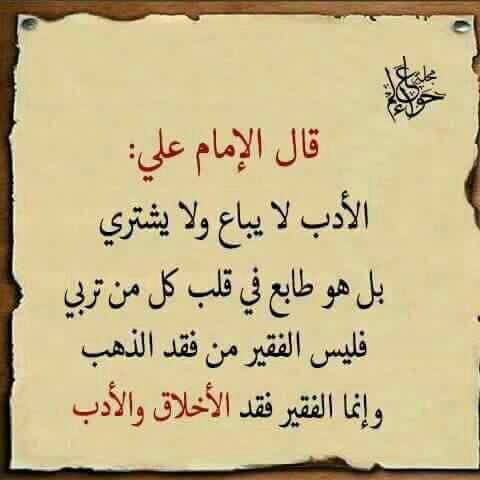 مجلة
قال الإمام علي:
الأدب لا يباع ولا يشتري
بل هو طابع في قلب كل من تربي
فليس الفقير من فقد الذهب
وإنما الفقير فقد الأخلاق والأدب